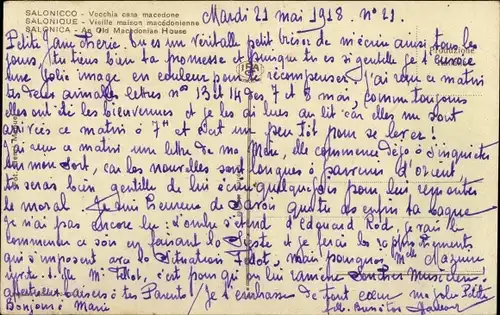 SALONICCO - Vecchia casa macedone
SALONIQUE - Vieille maison macédonienne
SALONICA - An Old Macedonian House
Mardi 21 mai 1918. n° 21.
Petite Jane chérie. Tu es un véritable petit trésor de m'écrire ainsi tous les
jours, tu tiens bien ta promesse et puisque tu es si gentille je t'envoie
une jolie image en couleur pour te récompenser. J'ai reçu ce matin
tes deux aimables lettres n° 13 et 14 des 7 et 8 mai, comme toujours
elles ont été les bienvenues et je les ai lues au lit car elles me sont
arrivées ce matin à 7h et c'est un peu tôt pour se lever!
J'ai reçu ce matin une lettre de ma Mère, elle commence déjà à s'inquiéter
de mon sort, car les nouvelles sont longues à parvenir d'Orient,
tu serais bien gentille de lui écrire quelques fois pour lui remonter
le moral. Je suis heureux de savoir que tu as enfin ta bague
je n'ai pas encore lu: "l'ombre s'étend" d'Edouard Rod, je vais le
commencer ce soir en faisant la sieste et je ferai les rapprochements
qui s'imposent avec la situation, mais pourquoi Melle
est-ce pour qui on lui
affectueux baisers à tes Parents / Je t'embrasse de tout coeur ma jolie Petite
Bonjour à Marie
Produzione